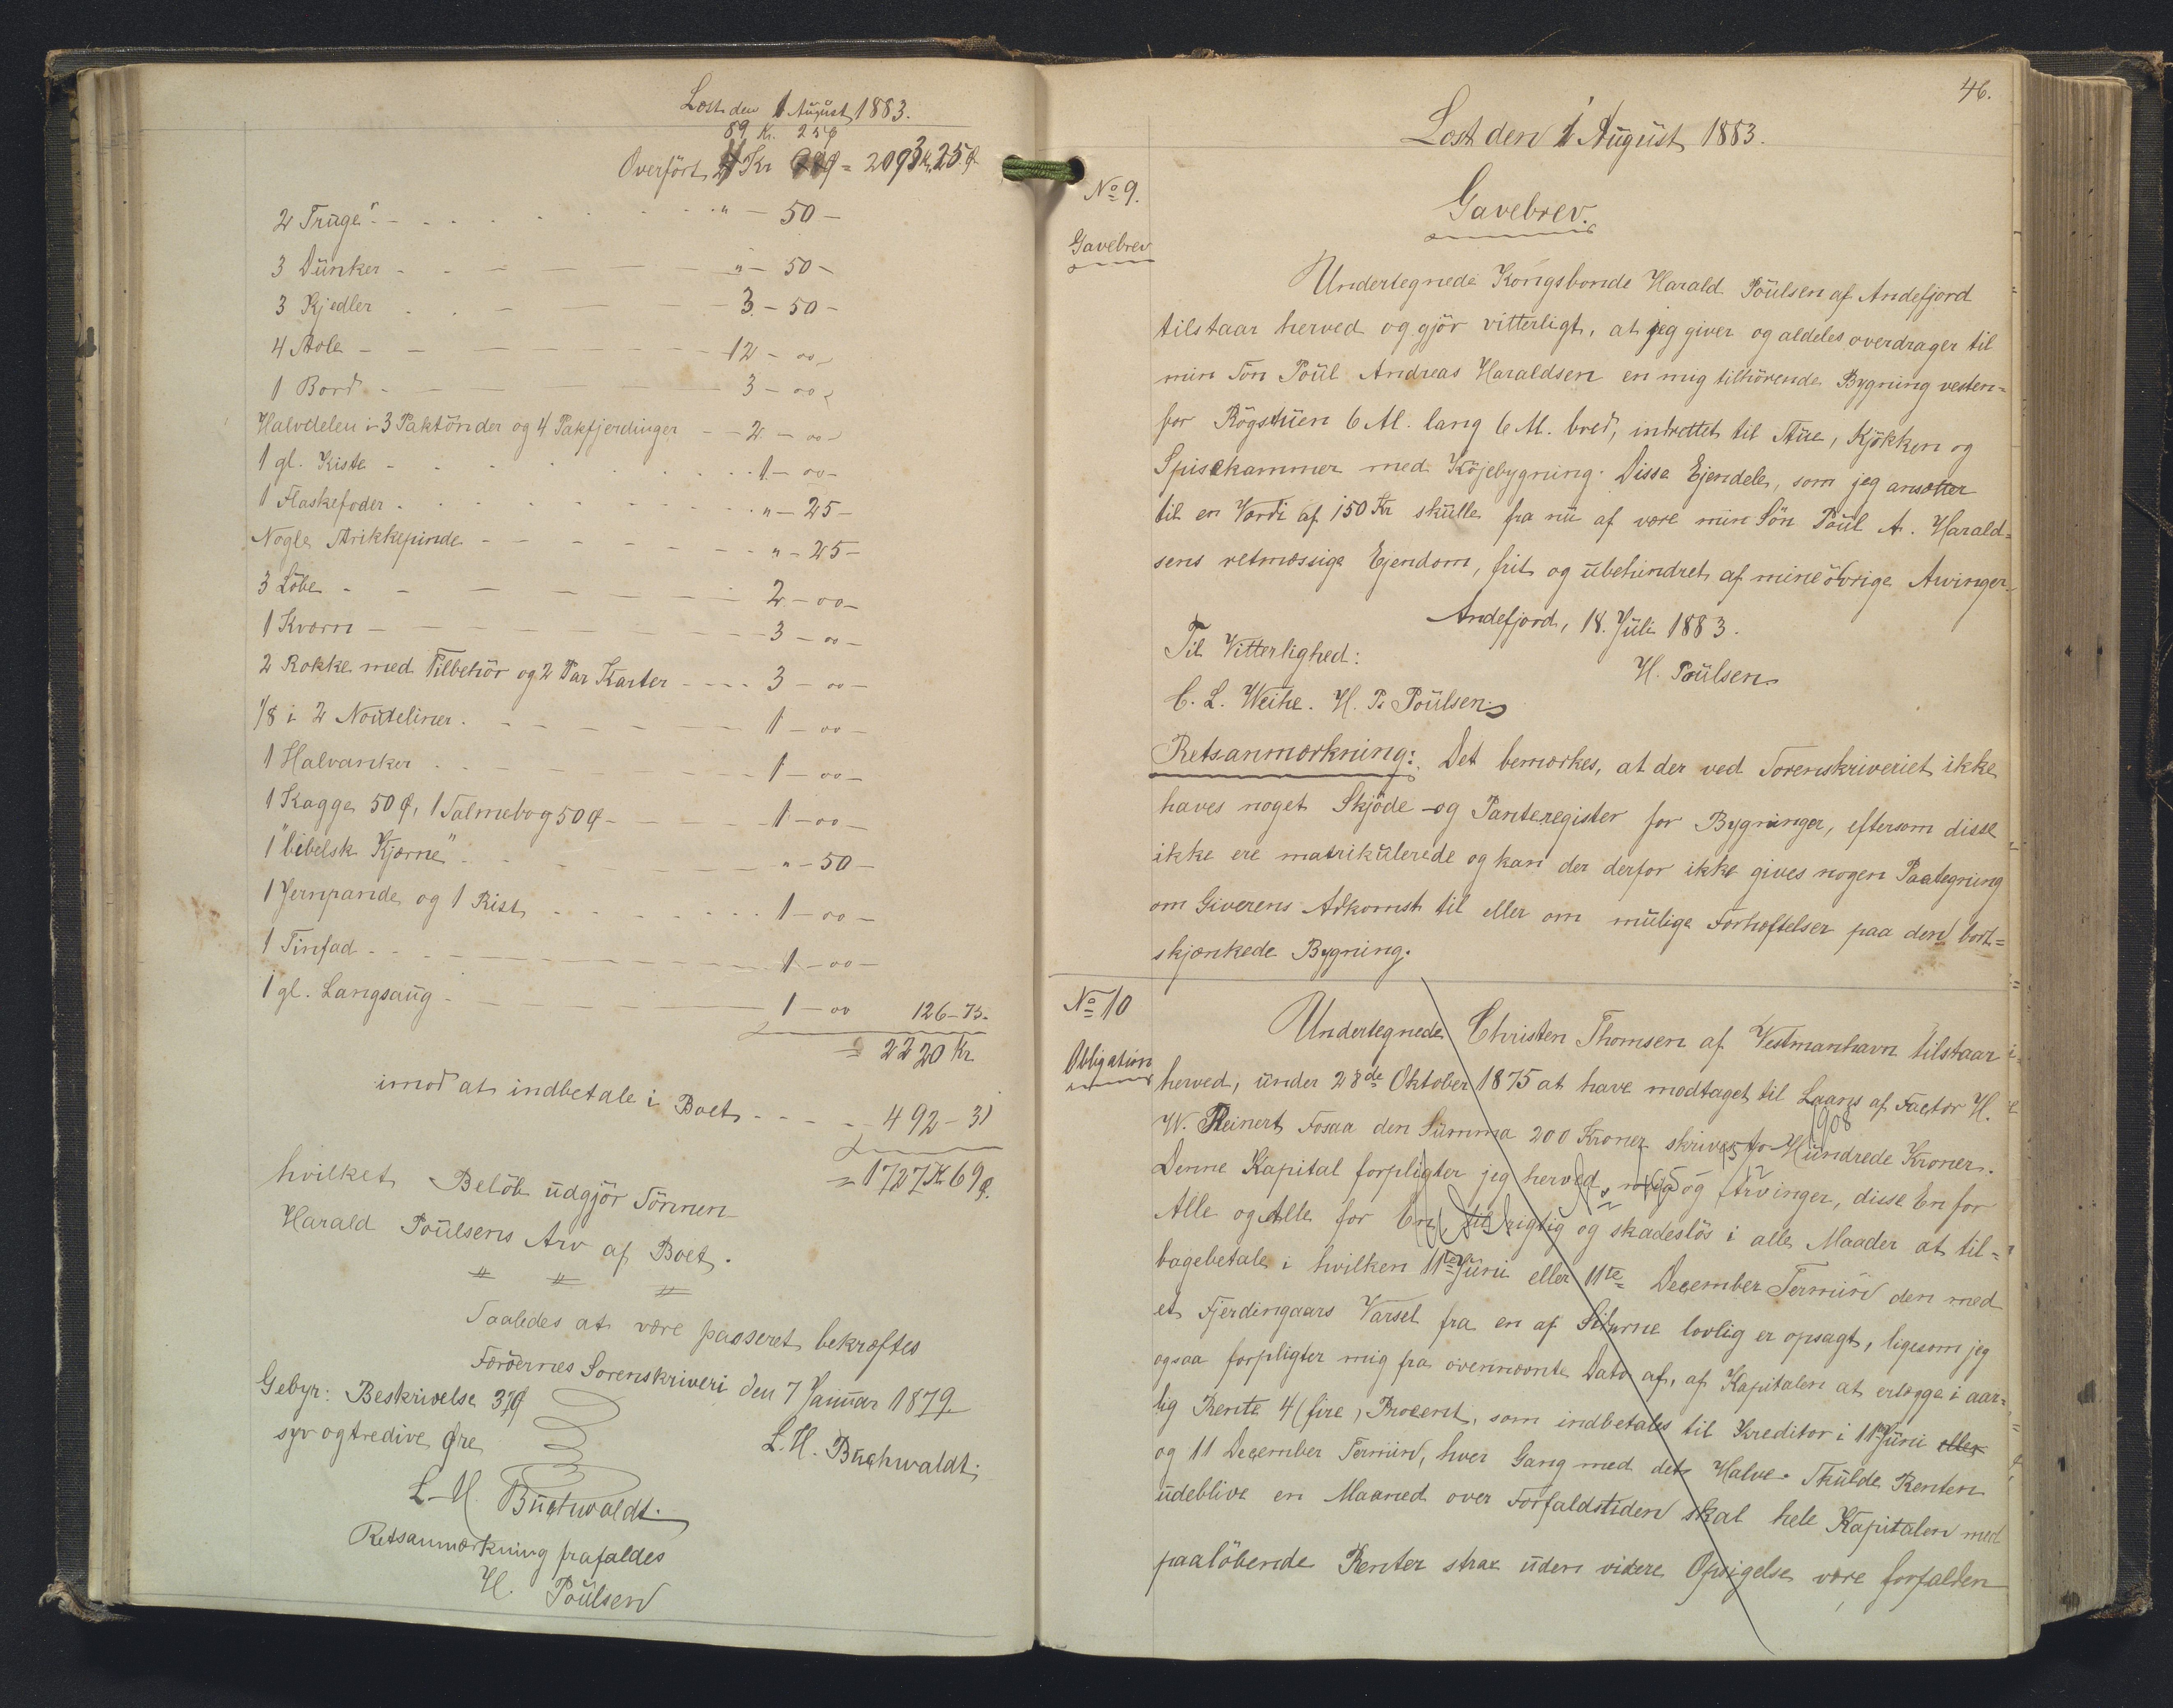 Læst den 1 August 1883.
89 Kr. 25 Ø
Overført Kr = 2093 Kr. 25 Ø
2 Truge " - 50 -
3 Dunker " - 50 -
3 Kjedler 3 - 50 -
4 Stole 12 - 00 -
1 Bord 3 - 00 -
Halvdelen i 3 Paktönder og 4 Pakfjerdinger 2 - 00 -
1 gl. Kiste 1 - 00 -
1 Flaskefoder " - 25 -
Nogle Strikkepinde " - 25 -
3 Löbe 2 - 00 -
1 Kværn 3 - 00 -
2 Rokke med Tilbehör og 2 Par Karter 3 - 00 -
1/8 i 2 Nodteliner 1 - 00 -
1 Halvanker 1 - 00 -
1 Kagge 50 Ø, 1 Salmebog 50 Ø 1 - 00 -
1 "bibelsk Kjærne" " - 50 -
1 Jernpande og 1 Rist 1 - 00 -
1 Tinfad 1 - 00 -
1 gl. Langsaug 1 - 00 126 - 75 -
= 2220 Kr.
imod at indbetale i Boet 492 - 31
= 1727 Kr 69 Ø.
hvilket Belöb udgjör Sönnen
Harald Poulsens Arv af Boet.
Saaledes at være passeret bekræftes
Færöernes Sorenskriveri den 7 Januar 1879
Gebyr: Beskrivelse 37 Ø
syv og tredive Øre
L. H. Buchwaldt.
L. H. Buchwaldt.
Retsanmærkning frafaldes
H. Poulsen
46.
Læst den 1 August 1883.
No 9.
Gavebrev.
Gavebrev
Undertegnede Kongsbonde Harald Poulsen af Andefjord
tilstaar herved og gjör vitterligt, at jeg giver og aldeles overdrager til
min Sön Poul Andreas Haraldsen en mig tilhörende Bygning vesten=
for Rögstuen 6 Al. lang 6 Al. bred, indrettet til Stue, Kjökken og
Spisekammer med Köjebygning. Disse Ejendele, som jeg ansætter
til en Værdi af 150 Kr skulle fra nu af være min Sön Poul A. Harald=
sens retmæssige Ejendom, frit og ubehindret af mine övrige Arvinger.
Andefjord, 18. Juli 1883.
Til Vitterlighed:
H. Poulsen
C. L. Weihe. H. P. Poulsen
Retsanmærkning: Det bemærkes, at der ved Sorenskriveriet ikke
haves noget Skjöde- og Panteregister for Bygninger, eftersom disse
ikke ere matrikulerede og kan der derfor ikke gives nogen Paategning
om Giverens Adkomst til eller om mulige Forhæftelser paa den bort=
skjænkede Bygning.
No 10
Obligation
Undertegnede Christen Thomsen af Vestmanhavn tilstaar
herved, under 28de Oktober 1875 at have modtaget til Laans af Factor H.
W. Reinert Fosaa den Summa 200 Kroner skriver to Hundrede Kroner.
1908
Denne Kapital forpligter jeg herved mig og Arvinger, disse En for
Alle og Alle for En til rigtig og skadeslös i alle Maader at til=
bagebetale i hvilken 11te Juni eller 11te December Termin den med
et Fjerdingaars Varsel fra en af Siderne lovlig er opsagt, ligesom jeg
ogsaa forpligter mig fra ovennævnte Dato af, af Kapitalen at erlægge i aar=
lig Rente 4 (fire) Procent, som indbetales til Kreditor i 11te Juni eller
og 11 December Termin, hver Gang med det Halve. Skulde Renten
udeblive en Maaned over Forfaldstiden skal hele Kapitalen med
paalöbende Renter strax uden videre Opsigelse være forfalden